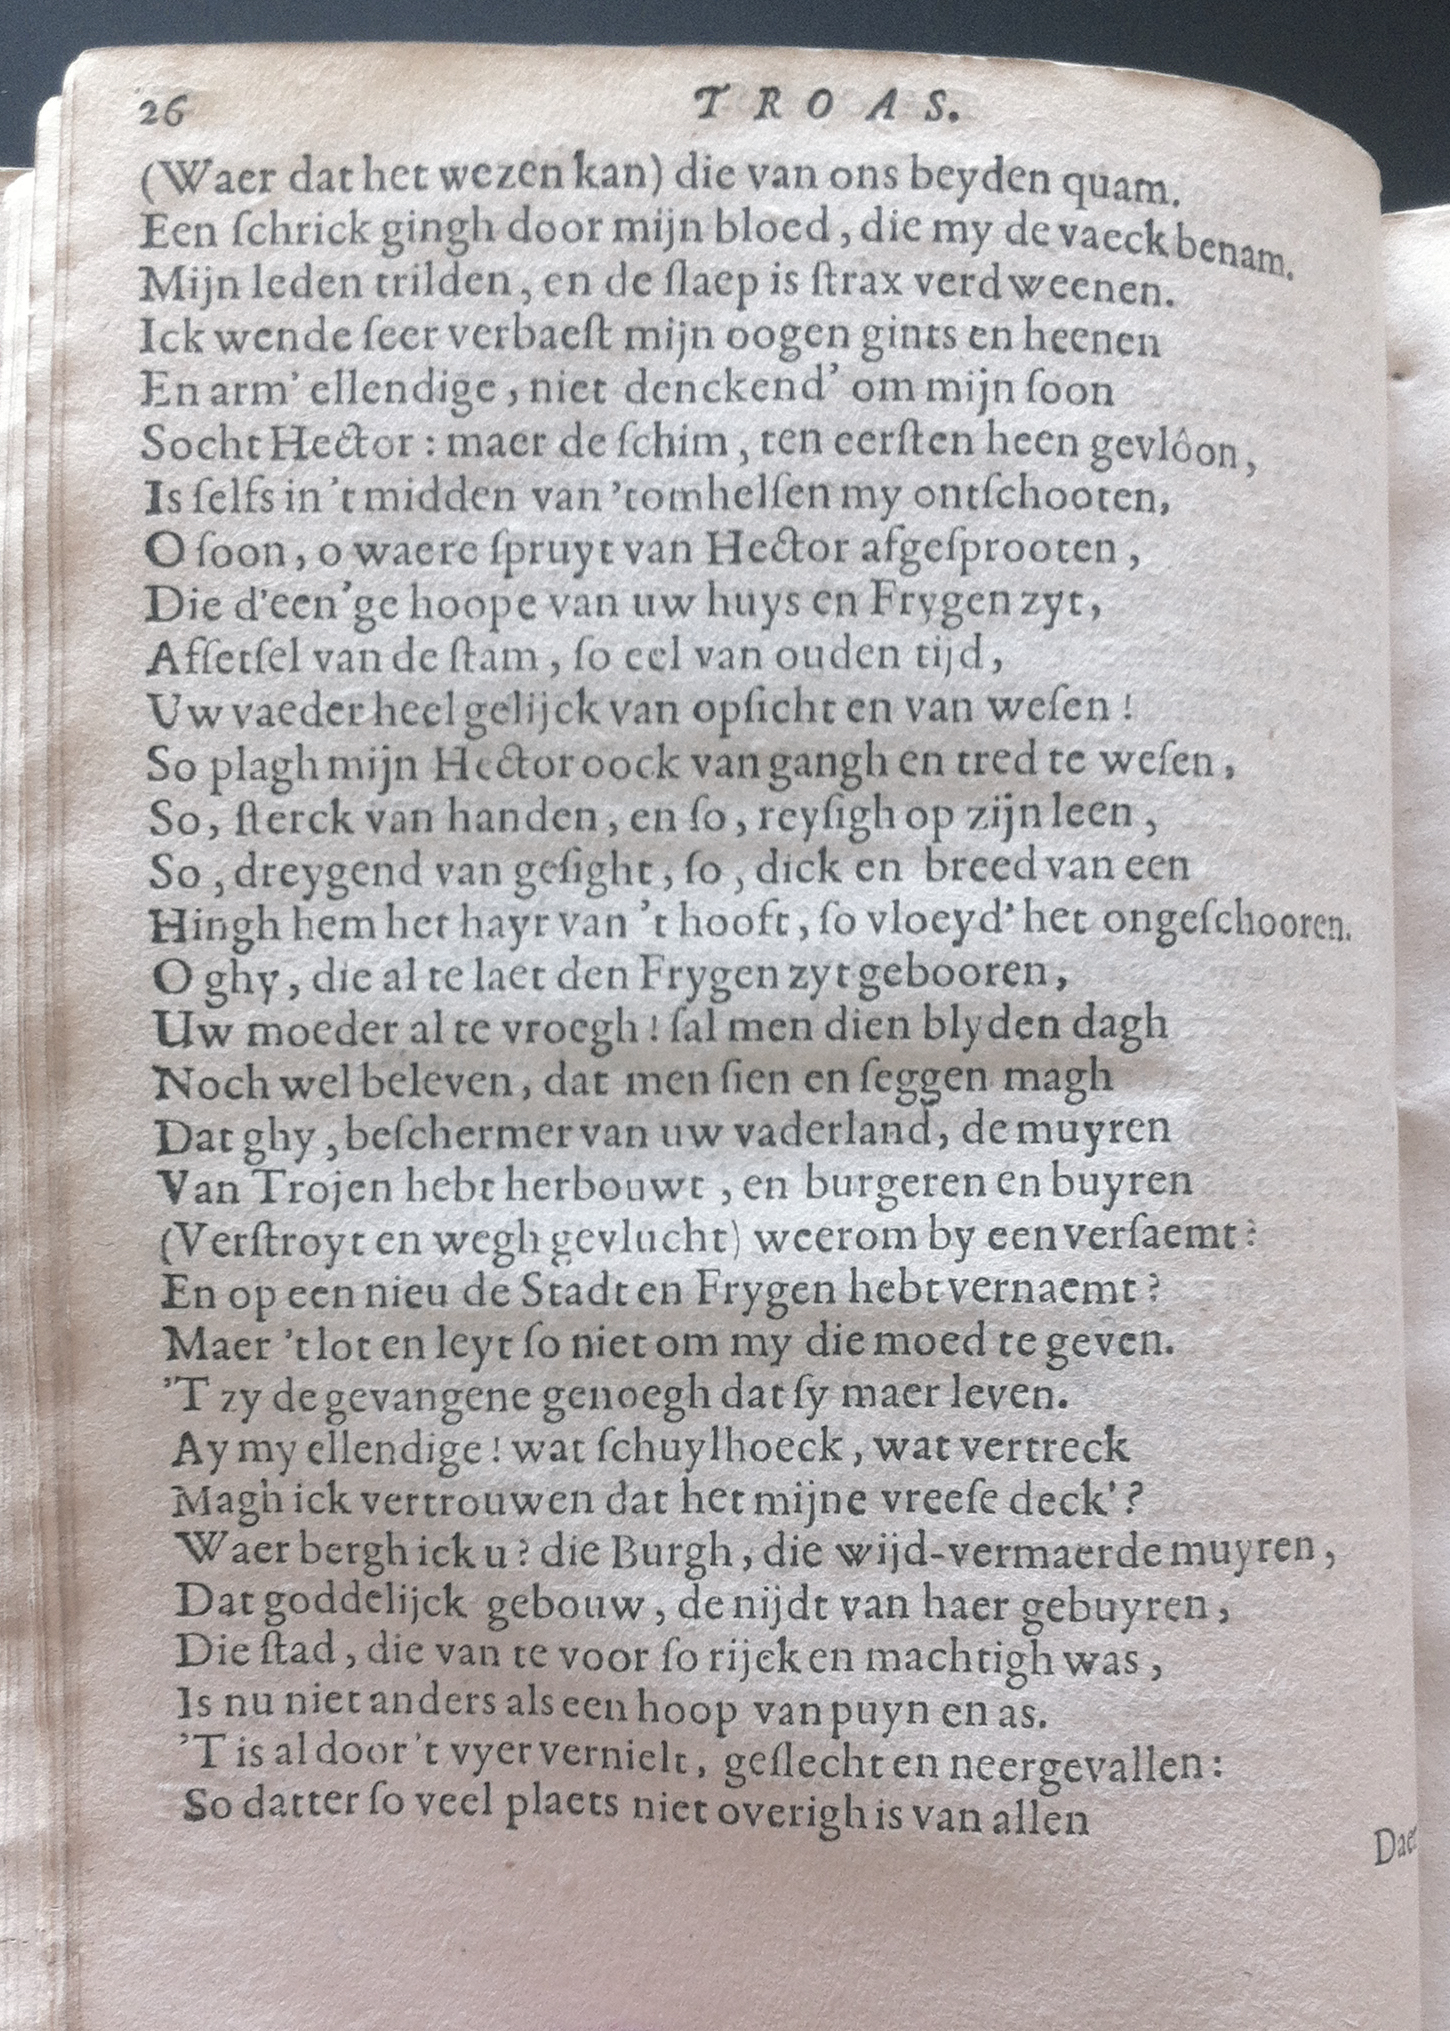 26 TROAS.
(Waer dat het wezen kan) die van ons beyden quam.
Een ſchrick gingh door mijn bloed, die my de vaeck benam.
Mijn leden trilden, en de ſlaep is ſtrax verdweenen.
Ick wende ſeer verbaeſt mijn oogen gints en heenen
En arm' ellendige, niet denckend' om mijn ſoon
Socht Hector: maer de ſchim, ten eerſten heen gevlôon,
Is ſelfs in 't midden van 'tomhelſen my ontſchooten,
O ſoon, o waere ſpruyt van Hector afgeſprooten,
Die d'een'ge hoope van uw huys en Frygen zyt,
Afſetſel van de ſtam, ſo eel van ouden tijd,
Uw vaeder heel gelijck van opſicht en van weſen!
So plagh mijn Hector oock van gangh en tred te weſen,
So, ſterck van handen, en ſo, reyſigh op zijn leen,
So, dreygend van geſight, ſo, dick en breed van een
Hingh hem het hayr van 't hooft, ſo vloeyd' het ongeſchooren.
O ghy, die al te laet den Frygen zyt gebooren,
Uw moeder al te vroegh! ſal men dien blyden dagh
Noch wel beleven, dat men ſien en ſeggen magh
Dat ghy, beſchermer van uw vaderland, de muyren
Van Trojen hebt herbouwt, en burgeren en buyren
(Verſtroyt en wegh gevlucht) weerom by een verſaemt?
En op een nieu de Stadt en Frygen hebt vernaemt?
Maer 't lot en leyt ſo niet om my die moed te geven.
'T zy de gevangene genoegh dat ſy maer leven.
Ay my ellendige! wat ſchuylhoeck, wat vertreck
Magh ick vertrouwen dat het mijne vreeſe deck'?
Waer bergh ick u? die Burgh, die wijd-vermaerde muyren,
Dat goddelijck gebouw, de nijdt van haer gebuyren,
Die ſtad, die van te voor ſo rijck en machtigh was,
Is nu niet anders als een hoop van puyn en as.
'T is al door 't vyer vernielt, geſlecht en neergevallen:
So datter ſo veel plaets niet overigh is van allen
Daer